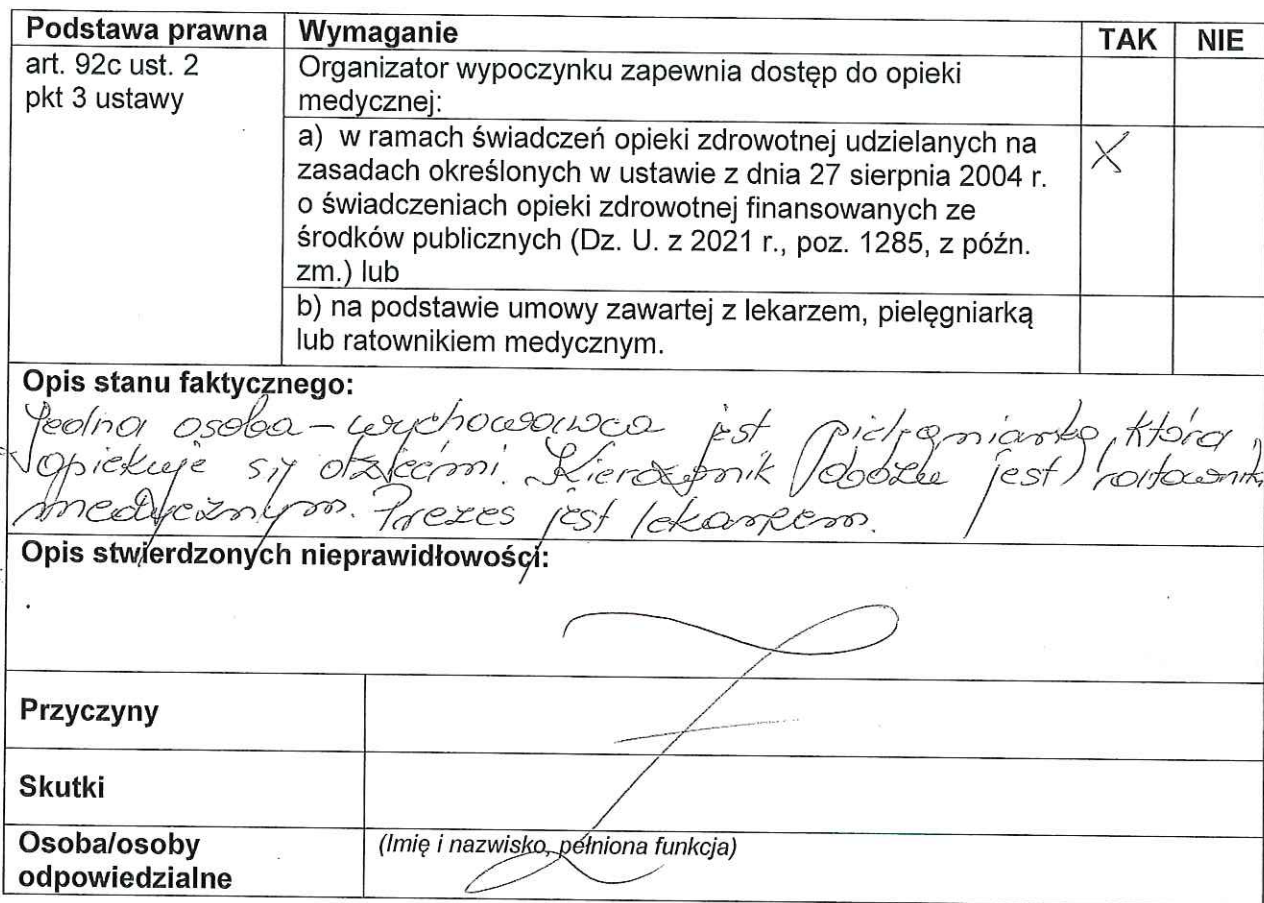 Podstawa prawna Wymaganie TAK NIE
art. 92c ust. 2
pkt 3 ustawy
Organizator wypoczynku zapewnia dostęp do opieki
medycznej:
a) w ramach świadczeń opieki zdrowotnej udzielanych na
zasadach określonych w ustawie z dnia 27 sierpnia 2004 r.
o świadczeniach opieki zdrowotnej finansowanych ze
środków publicznych (Dz. U. z 2021 r., poz. 1285, z późn.
zm.) lub
X
b) na podstawie umowy zawartej z lekarzem, pielęgniarką
lub ratownikiem medycznym.
Opis stanu faktycznego:
Jedna osoba – wychowawca jest pielęgniarką, która
opiekuje się dziećmi. Kierownik obozu jest ratownik
medycznym. Prezes jest lekarzem.
Opis stwierdzonych nieprawidłowości:
Przyczyny
Skutki
Osoba/osoby
odpowiedzialne
(Imię i nazwisko, pełniona funkcja)